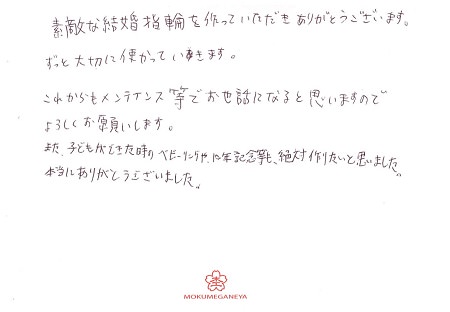 素敵な結婚指輪を作っていただきありがとうございます。
ずっと大切に使かっていきます。
これからもメンテナンス等でお世話になると思いますので
よろしくお願いします。
また、子どもができた時のベビーリングや、10年記念等も、絶対作りたいと思いました。
本当にありがとうございました。
MOKUMEGANEYA